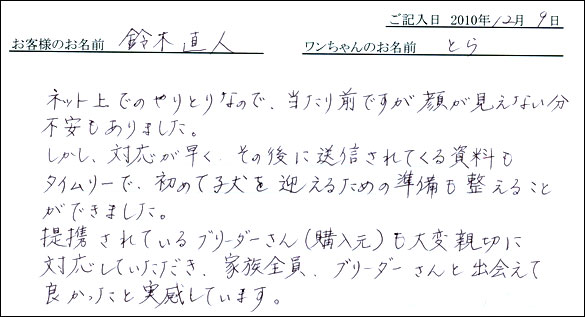 ご記入日 2010年12月9日
お客様のお名前 鈴木直人 ワンちゃんのお名前 とら
ネット上でのやりとりなので、当たり前ですが顔が見えない分
不安もありました。
しかし、対応が早く、その後に送信されてくる資料も
タイムリーで、初めて子犬を迎えるための準備も整えること
ができました。
提携されているブリーダーさん(購入元)も大変親切に
対応していただき、家族全員、ブリーダーさんと出会えて
良かったと実感しています。